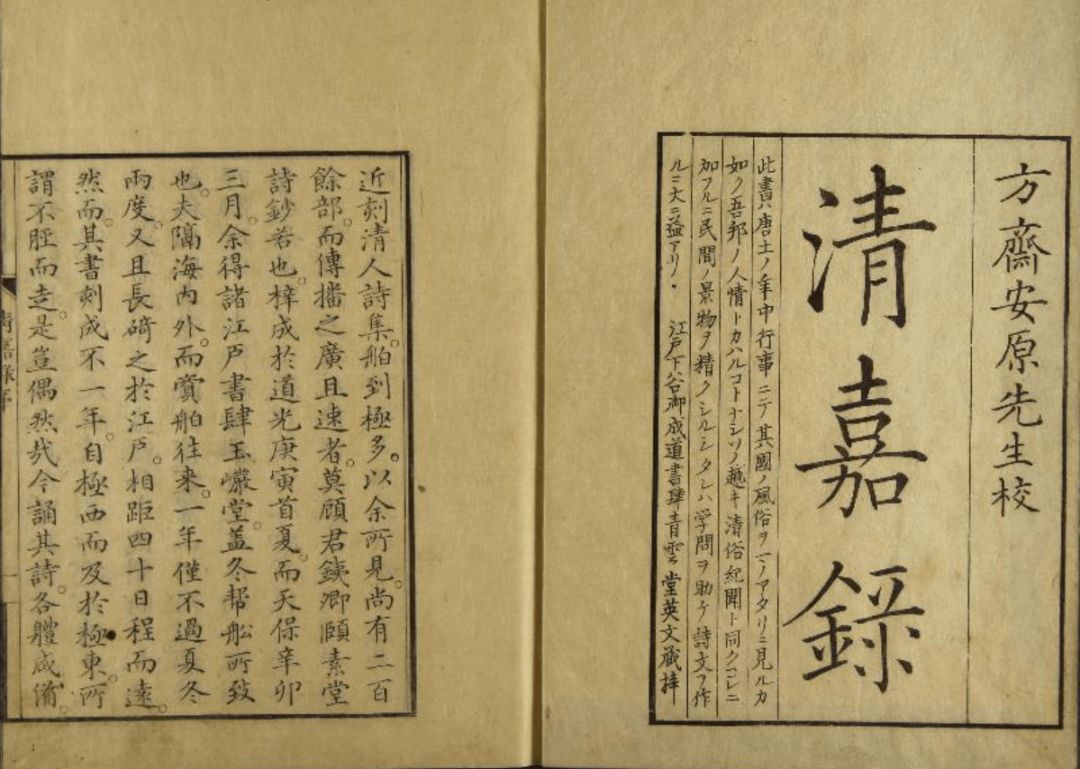 方齋安原先生校
清嘉錄
此書ハ唐土ノ年中行事ニテ其國ノ風俗ヲマノアタリニ見ルカ
如ク吾邦ノ人情トカハルコトナシソノ趣キ清俗紀聞ト同クコレニ
加フルニ民間ノ景物ヲ精クシルシタレハ学問ヲ助ケ詩文ヲ作
ルニ大ニ益アリ・ 江戸下谷御成道書肆青雲堂英文蔵梓
近刻清人詩集。舶到極多。以余所見。尚有二百
餘部。而傳播之廣且速者。莫顧君鐵卿頤素堂
詩鈔若也。梓成於道光庚寅首夏。而天保辛卯
三月。余得諸江戸書肆玉巖堂。盖冬帮舩所致
也。夫隔海內外。而賞舶往来。一年僅不過夏冬
兩度。又且長碕之於江戸。相距四十日程而遠。
然而。其書刻成不一年。自極西而及於極東。所
謂不脛而走。是豈偶然哉今誦其詩。各體咸備。
清嘉錄序
一